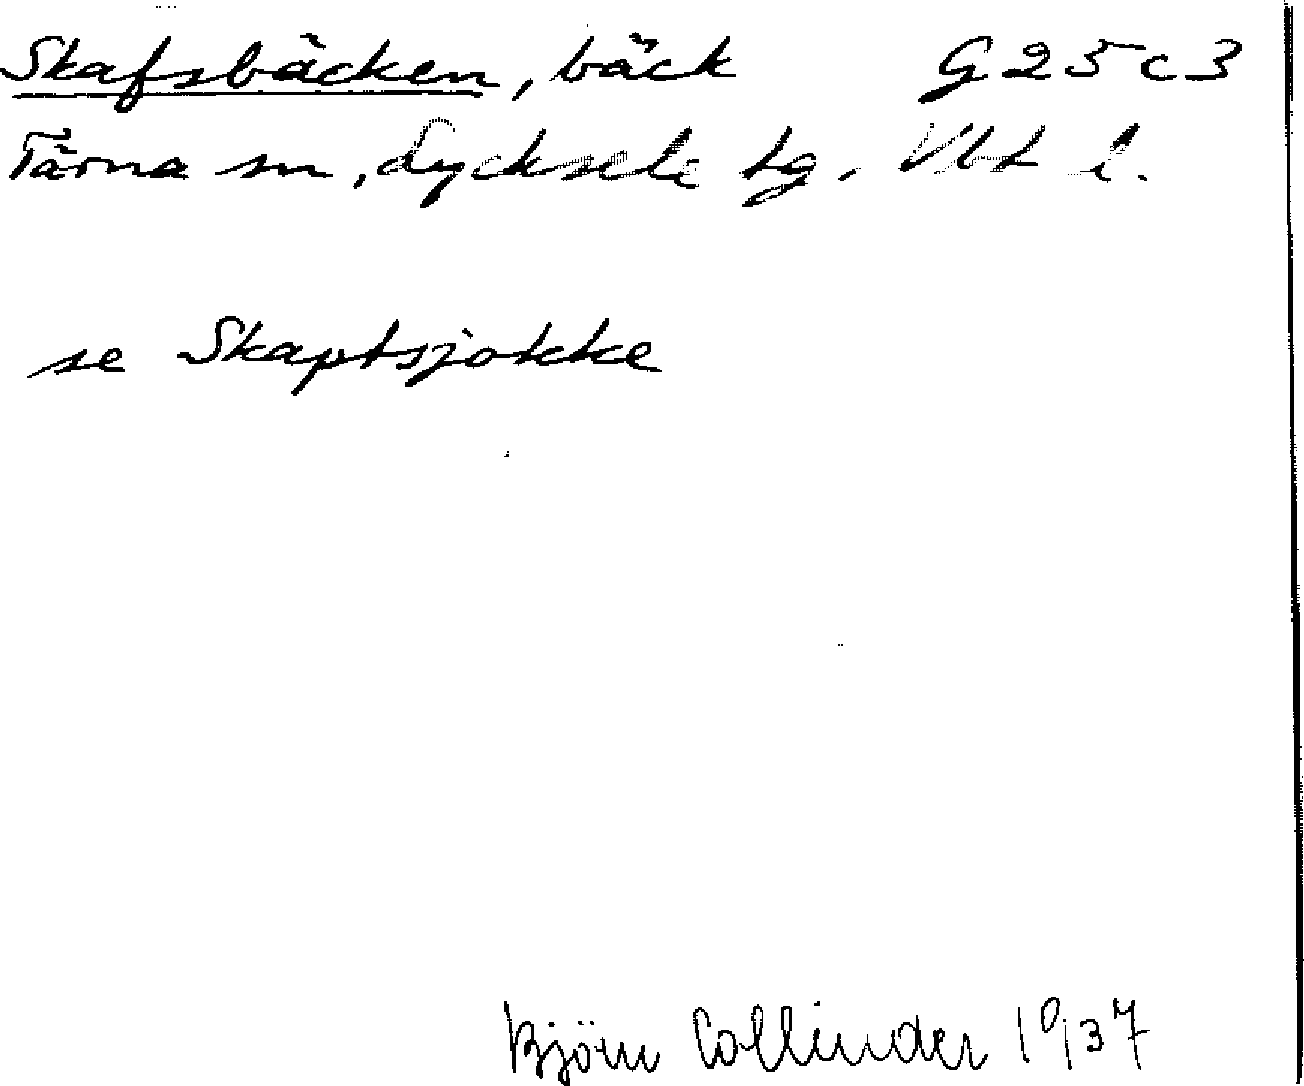 Skafsbäcken, bäck G25c3
Tärna sn, Lycksele tg. Vbt l.
se Skaptsjokke
Björn Collinder 1937